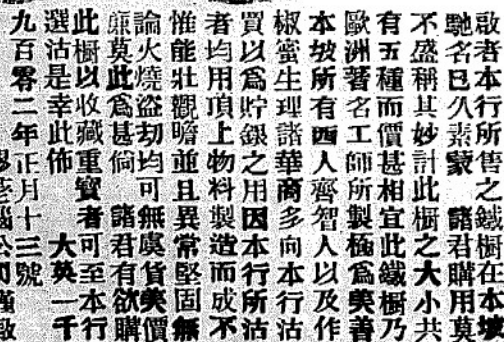 啟者本行所售之鐵櫥在本坡
馳名已久素蒙 諸君購用莫
不盛稱其妙計此櫥之大小共
有五種而價甚相宜此鐵櫥乃
歐洲著名工師所製極爲美善
本坡所有西人齊智人以及作
椒蜜生理諸華商多向本行沽
買以爲貯銀之用因本行所沽
者均用頂上物料製造而成不
惟能壯觀瞻並且異常堅固無
論火燒盜劫均可無虞貨美價
廉莫此爲甚倘 諸君有欲購
此櫥以收藏重寶者可至本行
選沽是幸此佈 大英一千
九百零二年正月十三號
公司謹啟